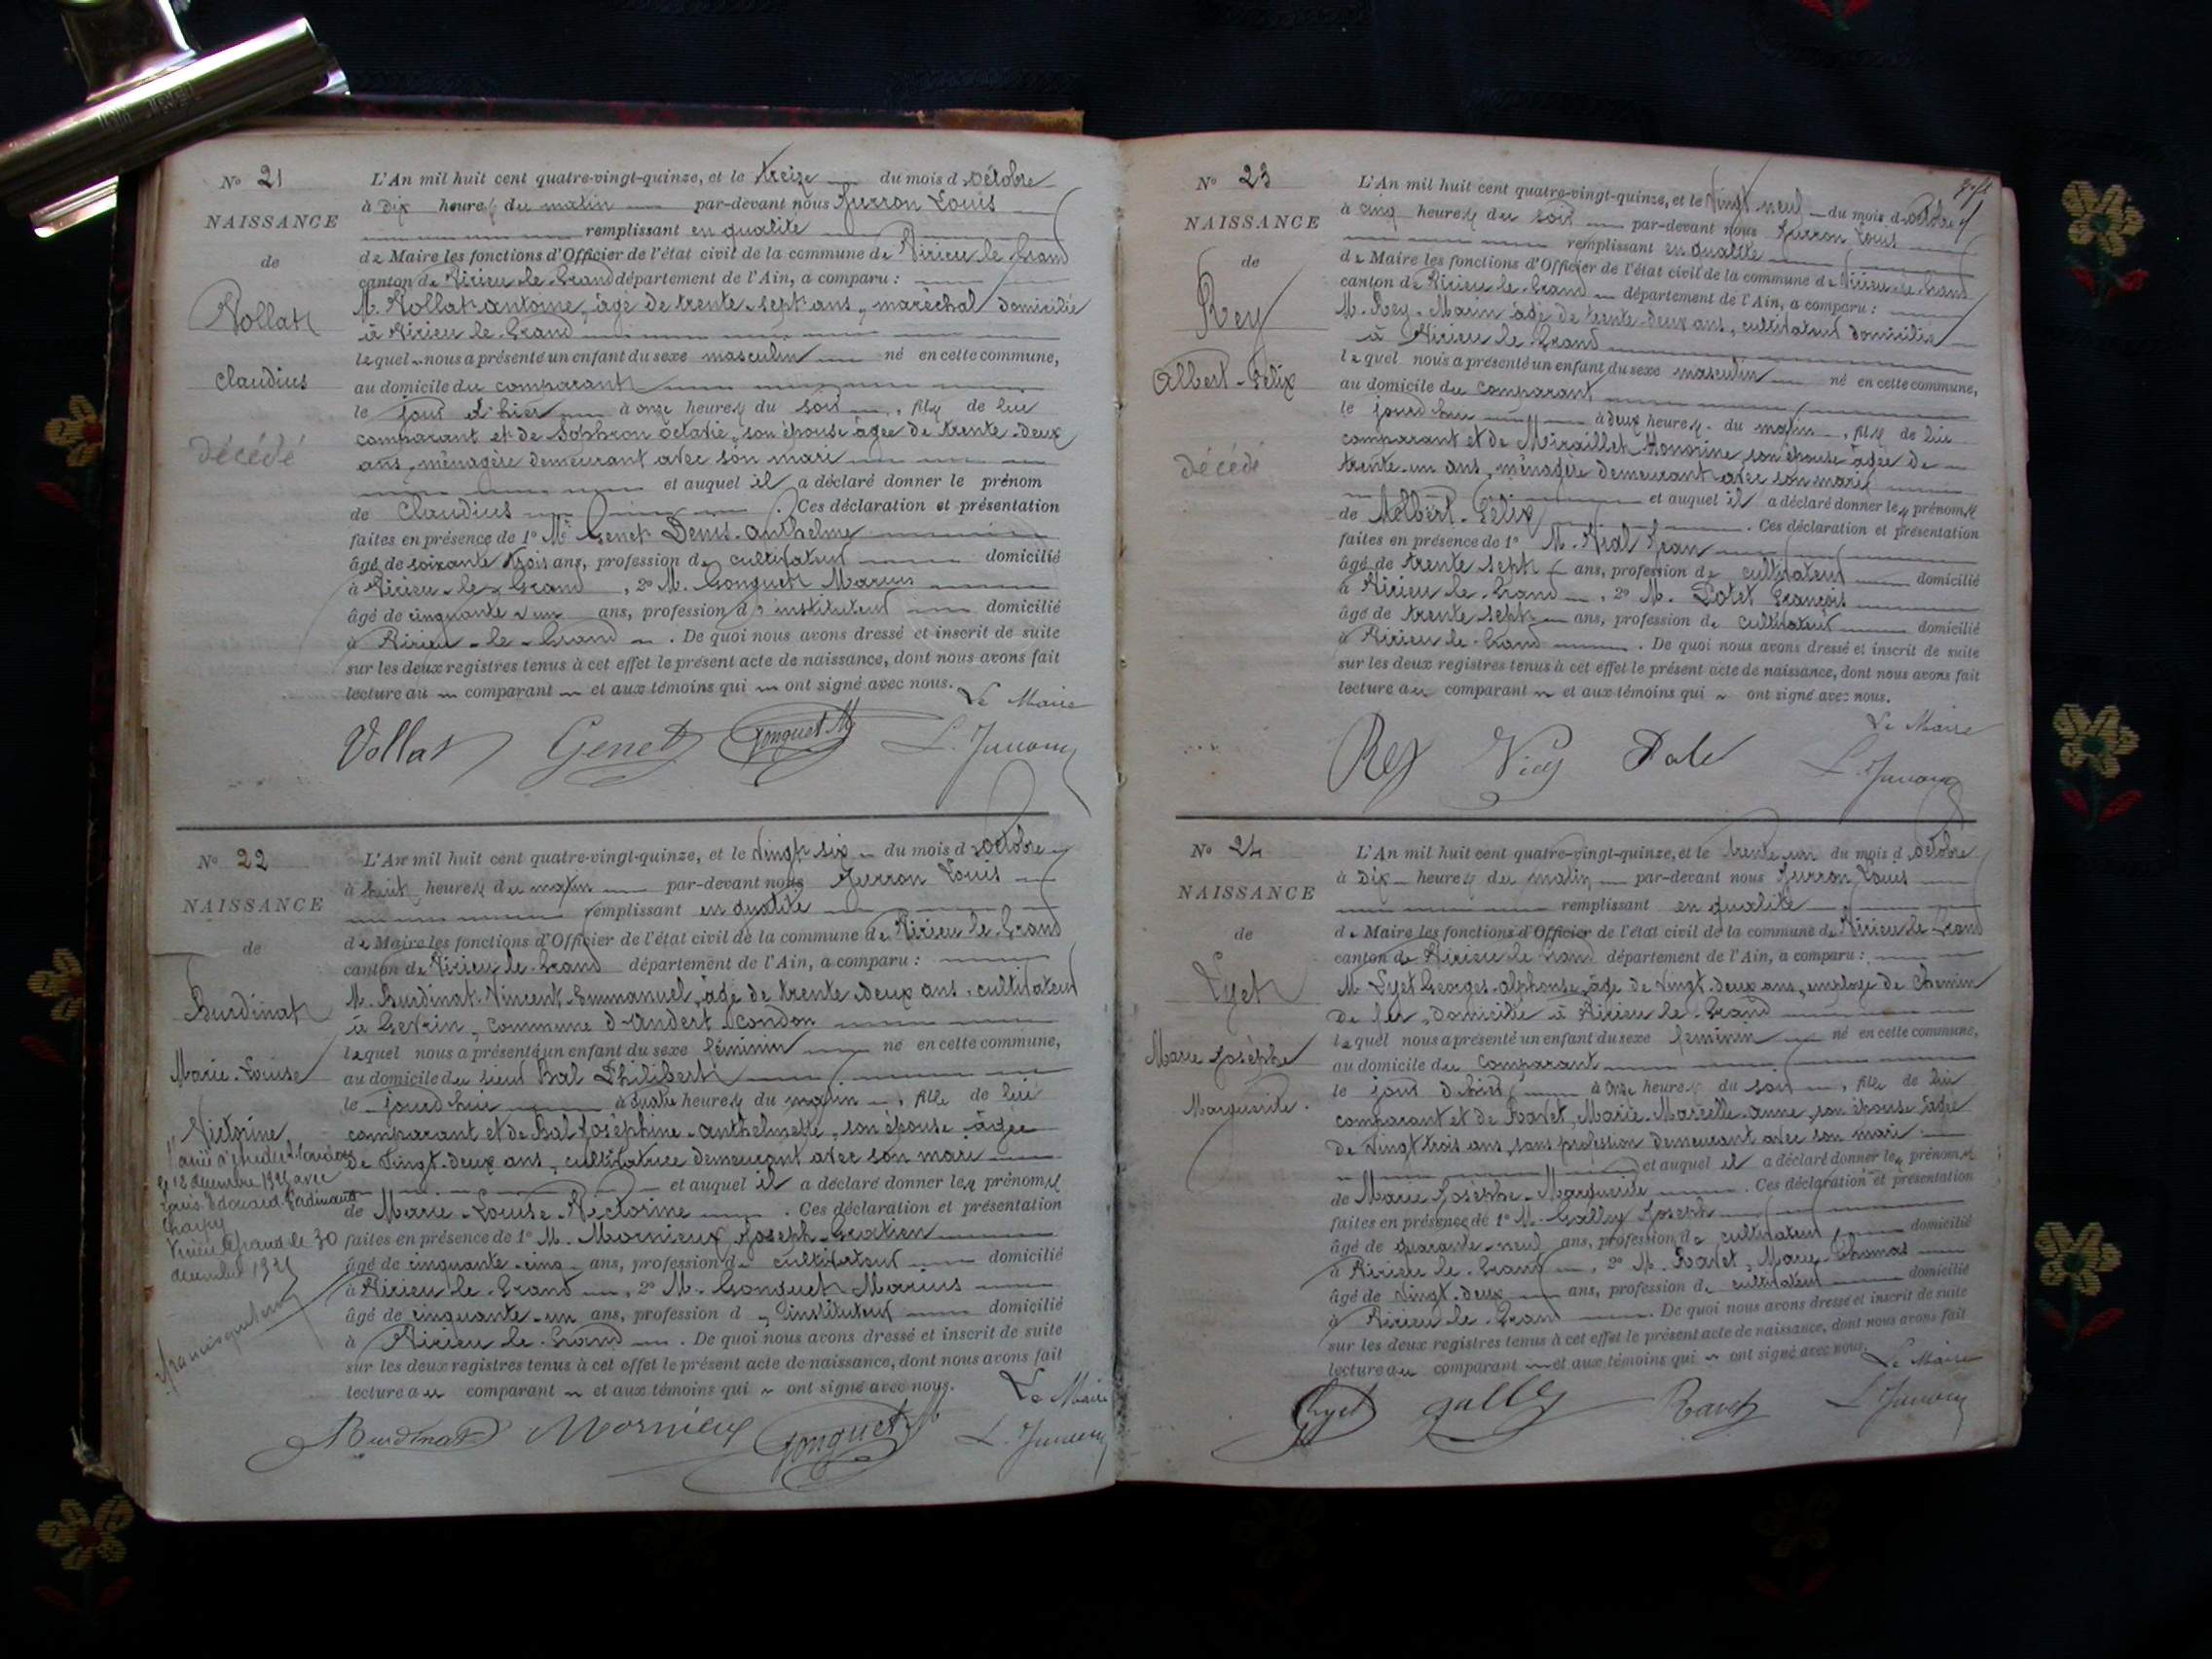 N° 21
NAISSANCE
de
Vollat
Claudius
décédé
L'An mil huit cent quatre-vingt-quinze, et le treize du mois d'octobre
à dix heures du matin par-devant nous Juvron Louis
remplissant en qualité
de Maire les fonctions d'Officier de l'état civil de la commune de Virieu-le-Grand
canton de Virieu-le-Grand département de l'Ain, a comparu :
M. Vollat Antoine, âgé de trente-sept ans, maréchal domicilié
à Virieu-le-Grand
lequel nous a présenté un enfant du sexe masculin né en cette commune,
au domicile du comparant
le jour d'hier à onze heures du soir, fils de lui
comparant et de Sophron Octavie, son épouse âgée de trente-deux
ans, ménagère demeurant avec son mari
et auquel il a déclaré donner le prénom
de Claudius. Ces déclaration et présentation
faites en présence de 1° M. Genet Denis-Anthelme
âgé de soixante trois ans, profession de cultivateur domicilié
à Virieu-le-Grand, 2° M. Gonguet Marius
âgé de cinquante un ans, profession d'instituteur domicilié
à Virieu-le-Grand. De quoi nous avons dressé et inscrit de suite
sur les deux registres tenus à cet effet le présent acte de naissance, dont nous avons fait
lecture au comparant et aux témoins qui ont signé avec nous.
Le Maire
Vollat Genet Gonguet M
N° 22
NAISSANCE
de
Burdinat
Marie-Louise
Victorine
le 12 décembre avec
Louis Edouard Ferdinand
Virieu le Grand le 30
décembre
L'An mil huit cent quatre-vingt-quinze, et le vingt-six du mois d'octobre
à huit heures du matin par-devant nous Juvron Louis
remplissant en qualité
de Maire les fonctions d'Officier de l'état civil de la commune de Virieu-le-Grand
canton de Virieu-le-Grand département de l'Ain, a comparu :
M. Burdinat Vincent-Emmanuel, âgé de trente-deux ans, cultivateur
à Gevrin, commune d'Andert-Condon
lequel nous a présenté un enfant du sexe féminin né en cette commune,
au domicile du sieur Bal Philibert
le jourd'hui à quatre heures du matin, fille de lui
comparant et de Bal Joséphine-Anthelmette, son épouse âgée
de vingt-deux ans, cultivatrice demeurant avec son mari
et auquel il a déclaré donner les prénoms
de Marie-Louise-Victorine. Ces déclaration et présentation
faites en présence de 1° M. Mornieux Joseph-Gratien
âgé de cinquante-cinq ans, profession de cultivateur domicilié
à Virieu-le-Grand, 2° M. Gonguet Marius
âgé de cinquante-un ans, profession d'instituteur domicilié
à Virieu-le-Grand. De quoi nous avons dressé et inscrit de suite
sur les deux registres tenus à cet effet le présent acte de naissance, dont nous avons fait
lecture au comparant et aux témoins qui ont signé avec nous.
Le Maire
Burdinat Mornieux Gonguet M
N° 23
NAISSANCE
de
Rey
Albert-Félix
décédé
L'An mil huit cent quatre-vingt-quinze, et le vingt-neuf du mois d'octobre
à cinq heures du soir par-devant nous Juvron Louis
remplissant en qualité
de Maire les fonctions d'Officier de l'état civil de la commune de Virieu-le-Grand
canton de Virieu-le-Grand département de l'Ain, a comparu :
M. Rey Marin âgé de trente-deux ans, cultivateur domicilié
à Virieu-le-Grand
lequel nous a présenté un enfant du sexe masculin né en cette commune,
au domicile du comparant
le jourd'hui à deux heures du matin, fils de lui
comparant et de Miraillet Honorine, son épouse âgée de
trente-un ans, ménagère demeurant avec son mari
et auquel il a déclaré donner les prénoms
de Albert-Félix. Ces déclaration et présentation
faites en présence de 1° M. Vial Jean
âgé de trente sept ans, profession de cultivateur domicilié
à Virieu-le-Grand, 2° M. Dotet François
âgé de trente sept ans, profession de cultivateur domicilié
à Virieu-le-Grand. De quoi nous avons dressé et inscrit de suite
sur les deux registres tenus à cet effet le présent acte de naissance, dont nous avons fait
lecture au comparant et aux témoins qui ont signé avec nous.
Le Maire
Rey
N° 24
NAISSANCE
de
Lyet
Marie Josèphe
Marguerite.
L'An mil huit cent quatre-vingt-quinze, et le trente-un du mois d'octobre
à dix heures du matin par-devant nous Juvron Louis
remplissant en qualité
de Maire les fonctions d'Officier de l'état civil de la commune de Virieu-le-Grand
canton de Virieu-le-Grand département de l'Ain, a comparu :
M. Lyet Georges-Alphonse, âgé de vingt-deux ans, employé de chemin
de fer, domicilié à Virieu-le-Grand
lequel nous a présenté un enfant du sexe féminin né en cette commune,
au domicile du comparant
le jour d'hier à onze heures du soir, fille de lui
comparant et de Ravet, Marie-Marcelle-Anne, son épouse âgée
de vingt trois ans, sans profession demeurant avec son mari
et auquel il a déclaré donner les prénoms
de Marie Josèphe-Marguerite. Ces déclaration et présentation
faites en présence de 1° M. Gally Joseph
âgé de quarante-neuf ans, profession de cultivateur domicilié
à Virieu-le-Grand, 2° M. Ravet, Marie-Thomas
âgé de vingt-deux ans, profession de cultivateur domicilié
à Virieu-le-Grand. De quoi nous avons dressé et inscrit de suite
sur les deux registres tenus à cet effet le présent acte de naissance, dont nous avons fait
lecture au comparant et aux témoins qui ont signé avec nous.
Le Maire
Lyet Gally Ravet